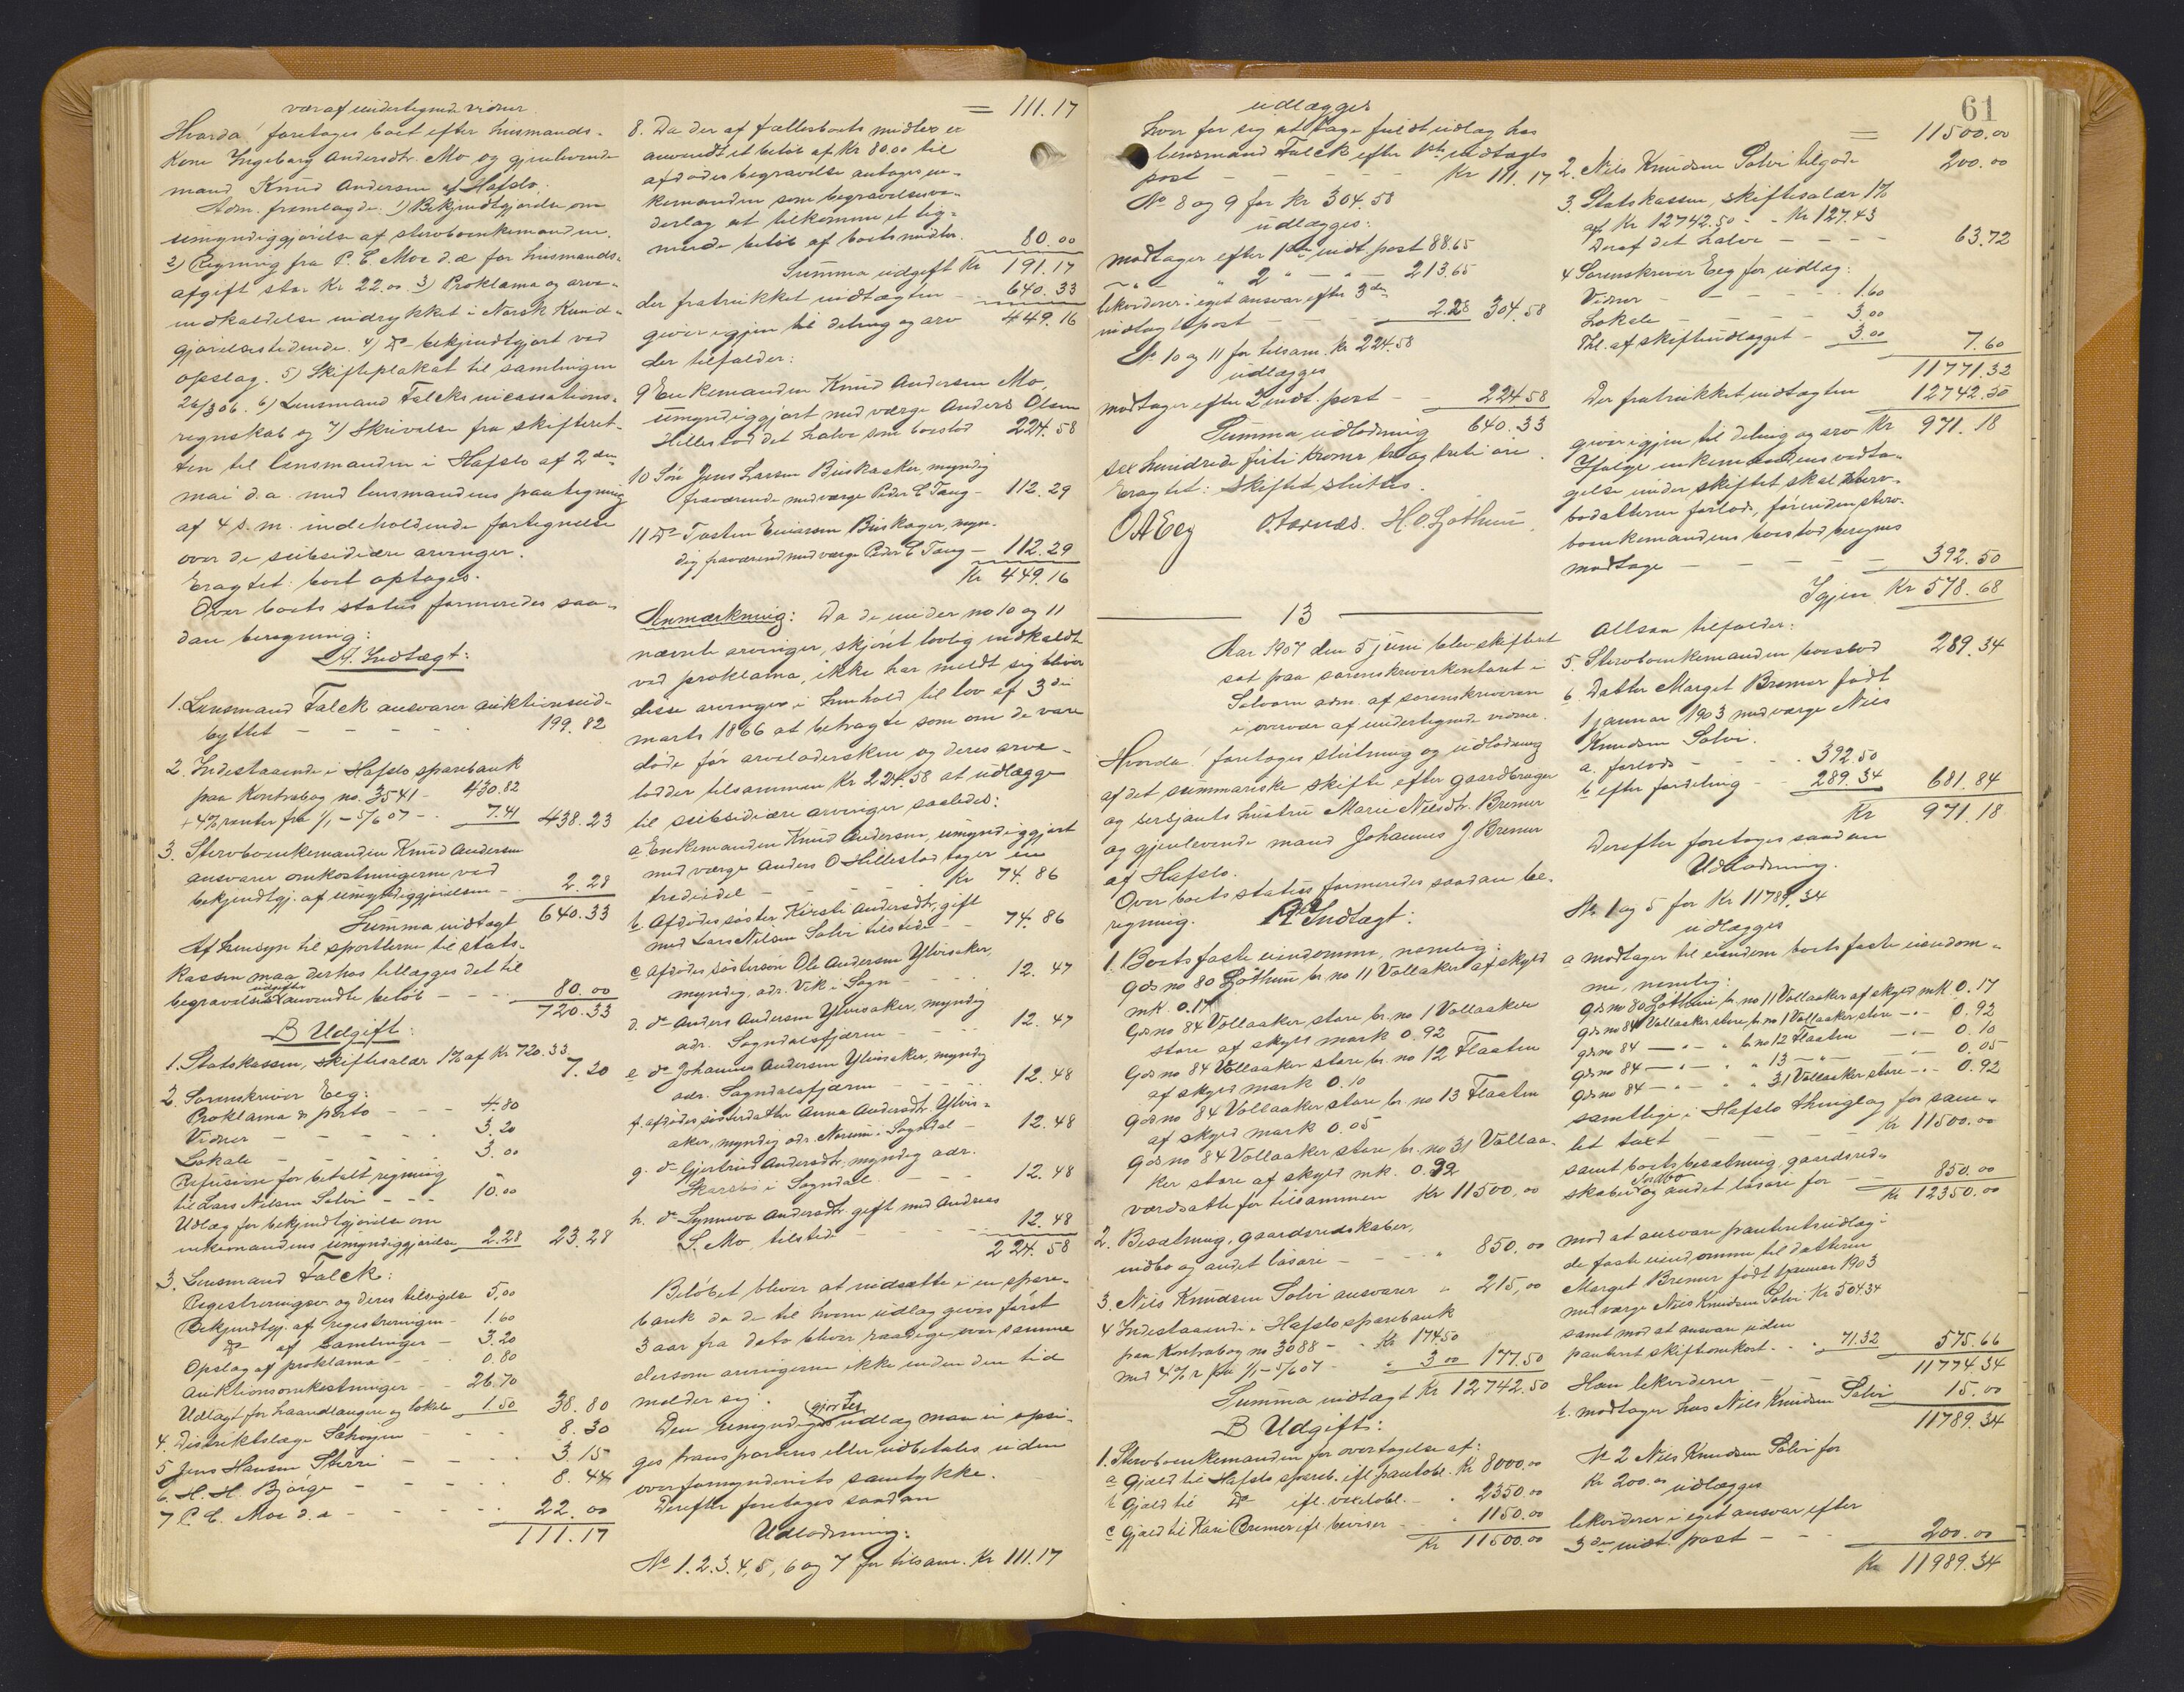 vær af undertegnede vidner
Hvorda! foretoges boet efter husmands-
kone Ingeborg Andersdtr. Mo og gjenlevende
mand Knud Andersen af Hafslo.
Adm. fremlagde: 1) Bekjendtgjørelse om
umyndiggjørelse af stervboenkemanden.
2) Regning fra P. C. Moe d.æ for husmands-
afgift stor Kr 22.00 3) Proklama og arve-
indkaldelse indrykket i Norsk Kund-
gjørelsestidende. 4) Do bekjendtgjort ved
opslag. 5) Skifteplakat til samlingen
26/3 06. 6) Lensmand Falcks incassations-
regnskab og 7) Skrivelse fra skifteret-
ten til lensmanden i Hafslo af 2den
mai d.a. med lensmandens paategning
af 4 s.m. indeholdende fortegnelse
over de subsidiære arvinger.
Eragtet: boet optages.
Over boets status formeredes saa-
dan beregning:
A. Indtægt:
1. Lensmand Falck ansvarer auktionsud-
byttet - - - - 199.82
2. Indestaaende i Hafslo sparebank
paa Kontrabog no. 3541 - 430.82
+ 4% renter fra 1/1 - 5/6 07 - 7.41 438.23
3. Stervboenkemanden Knud Andersen
ansvarer omkostningerne ved
bekjendtgj. af umyndiggjørelsen - 2.28
Summa indtægt 640.33
Af hensyn til sportlerne til stats-
kassen maa derhos tillægges det til
begravelsesudgifter anvendte beløb - - - 80.00
720.33
B Udgift:
1. Statskassen, skiftesalær 1% af Kr 720.33 7.20
2. Sorenskriver Eeg:
Proklama & porto - - - 4.80
Vidner - - - - 3.20
Lokale - - - - 3.00
Refusion for betalt regning
til Lars Nilsen Solvi - - - 10.00
Udlæg for bekjendtgjørelse om
enkemandens umyndiggjørelse 2.28 23.28
3. Lensmand Falck:
Registreringsv. og deres tilsigelse 5,00
Bekjendtgj. af registreringen - 1.60
Do af samlinger - 3.20
Opslag af proklama - - 0.80
Auktionsomkostninger - 26.70
Udlagt for haandlangere og lokale 1.50 38.80
4. Distriktslæge - - 8.30
5 Jens Hansen - - 3.15
6. H. H. Bjørge - - - 8.44
7 P. C. Moe d.æ - - - - 22.00
111.17
= 111.17
8. Da der af fællesboets midler er
anvendt et beløb af Kr 80.00 til
afdødes begravelse antages en-
kemanden som begravelsesve-
derlag at tilkomme et lig-
nende beløb af boets midler. 80.00
Summa udgift Kr 191.17
der fratrukket indtægten - 640.33
giver igjen til deling og arv 449.16
der tilfalder:
9 Enkemanden Knud Andersen Mo,
umyndiggjort med værge Anders Olsen
Hillestad det halve som boeslod 224.58
10 Søn Jens Larsen Buskaker, myndig
fraværende med værge Peder C Taug - 112.29
11 Do Tosten Buskager, myn-
dig fraværend med værge Peder C Taug - 112.29
Kr 449.16
Anmærkning: Da de under no 10 og 11
nævnte arvinger, skjønt lovlig indkaldt
ved proklama, ikke har meldt sig bliver
disse arvinger i henhold til lov af 3die
marts 1866 at betragte som om de vare
døde før arveladersken og deres arve-
lodder tilsammen Kr 224.58 at udlægge
til subsidiære arvinger saaledes:
a. Enkemanden Knud Andersen, umyndiggjort
med værge Anders O Hillestad tager en
trediedel - - - Kr 74.86
b. Afdødes søster Kirsti Andersdtr, gift
med Lars Nilsen Solvi tilstede - 74.86
c Afdødes søstersøn Ole Andersen Ylvisaker,
myndig, adr. Vik i Sogn - - 12.47
d. do Anders Andersen Ylvisaker, myndig
adr. Sogndalsfjæren - - - 12.47
e do Johannes Andersen Ylvisaker, myndig
adr. Sogndalsfjæren - - 12.48
f. afdødes søsterdatter Anna Andersdtr. Ylvis-
aker, myndig adr. Nornes i Sogndal - 12.48
g. do Gjertrud Andersdtr, myndig adr.
i Sogndal - - 12.48
h. do Synneva Andersdtr. gift med Andreas
S. Mo, tilstede - - - 12.48
224.58
Beløbet bliver at indsætte i en spare-
bank da de til hvem udlæg gives først
3 aar fra dato bliver raadige over samme
dersom arvingerne ikke inden den tid
melder sig.
Den umyndiggjortes udlæg maa ei opsi-
ges transporteres eller udbetales uden
overformynderiets samtykke.
Derefter foretoges saadan
Udlodning:
No 1. 2. 3. 4, 5, 6 og 7 for tilsam. Kr 111.17
udlægges
hver for sig at tage fuldt udlæg hos
lensmand Falck efter 1ste indtægts
post - - - - Kr 111.17
No 8 og 9 for Kr 304.58
udlægges:
modtager efter 1ste indt. post 88.65
" " 2 " - " - 213.65
likviderer i eget ansvar efter 3die
indtægtspost - - - 2.28 304.58
No 10 og 11 for tilsam. Kr 224.58
udlægges
modtager efter 2 indt. post - - 224.58
Summa udlodning 640.33
sex hundrede firti Kroner tre og treti øre.
Eragtet: Skiftet sluttes.
OAEeg O. Aarnæs. H. O. Lothun.
13
Aar 1907 den 5 juni blev skifteret
sat paa sorenskriverkontoret i
Solvorn adm. af sorenskriveren
i overvær af undertegnede vidner.
Hvorda! foretoges slutning og udlodning
af det summariske skifte efter gaardbruger
og sersjants hustru Marie Nilsdtr. Bremer
og gjenlevende mand Johannes J Bremer
af Hafslo.
Over boets status formeredes saadan be-
regning. A. Indtægt:
1. Boets faste eiendomme, nemlig:
gds no 80 Lothun br. no 11 Vollaker af skyld
mk. 0.17
Gds no 84 Vollaaker, store br. no 1 Vollaaker
store af skyld mark 0.92
Gds no 84 Vollaaker store br. no 12 Flaaten
af skyld mark 0.10
gds no 84 Vollaaker store br. no 13 Flaaten
af skyld mark 0.05
gds no 84 Vollaaker store br. no 31 Vollaa-
ker store af skyld mk. 0.92
værdsatte for tilsammen Kr 11500,00
2. Besætning, gaardsredskaber,
indbo og andet løsøre - - - " 850.00
3. Nils Knudsen Solvi ansvarer " 215,00
4 Indestaaende i Hafslo sparebank
paa Kontrabog no 3088 - - Kr 174.50
med 4% r fra 1/1 - 5/6 07 - " 3.00 177.50
Summa indtægt Kr 12742.50
B Udgift:
1. Stervboenkemanden for overtagelse af:
a Gjæld til Hafslo spareb. ifl. pantobl. Kr 8000.00
b Gjæld til Do ifl. vexelobl. - " 2350.00
c Gjæld til Kari Bremer ifl. beviser - " 1150.00
Kr 11500.00
61
= 11500.00
2. Nils Knudsen Solvi tilgode 200.00
3. Statskassen, skiftesalær 1%
af Kr 12742.50 - - Kr 127.43
Deraf det halve - - - - 63.72
4 Sorenskriver Eeg for udlæg:
Vidner - - - - - 1.60
Lokale - - - - - 3.00
Thl. af skifteudlægget - 3.00 7.60
11771.32
Der fratrukket indtægten 12742.50
giver igjen til deling og arv Kr 971.18
Ifølge enkemandens vedta-
gelse under skiftet skal sterv-
bodatteren forlods, foruden sterv-
boenkemandens boeslod, beregnes
modtage - - - - - 392.50
Igjen Kr 578.68
Altsaa tilfalder:
5. Stervboenkemanden boeslod 289.34
6 Datter Marget Bremer født
1 januar 1903 med værge Nils
Knudsen Solvi.
a. forlods - - - - 392.50
b efter fordeling - 289.34 681.84
Kr 971.18
Derefter foretoges saadan
Udlodning.
No 1 og 5 for Kr 11789.34
udlægges
a modtager til eiendom boets faste eiendom-
me, nemlig:
gds no 80 Lothun br. no 11 Vollaaker af skyld mk 0.17
gds no 84 Vollaaker store br. no 1 Vollaaker store -"- 0.92
gds no 84 -"- " br. no 12 Flaaten -"- 0.10
gds no 84 -"- " " 13 -"- -"- 0.05
gds no 84 -"- " " 31 Vollaaker store -"- 0.92
samtlige i Hafslo thinglag for sam-
let taxt - - - - Kr 11500.00
samt boets besætning gaardsred-
skaber indbo og andet løsøre for - - 850.00
Kr 12350.00
mod at ansvare panteretsudlæg i
de faste eiendomme til datteren
Marget Bremer født 1 januar 1903
med værge Nils Knudsen Solvi Kr 504.34
samt mod at ansvare uden
panteret skifteomkost. - " 71.32 575.66
11774.34
Han likviderer - - -
b. modtager hos Nils Knudsen Solvi 15.00
11789.34
No 2 Nils Knudsen Solvi for
Kr 200.00 udlægges
likviderer i eget ansvar efter
3die indt. post - - - 200.00
Kr 11989.34